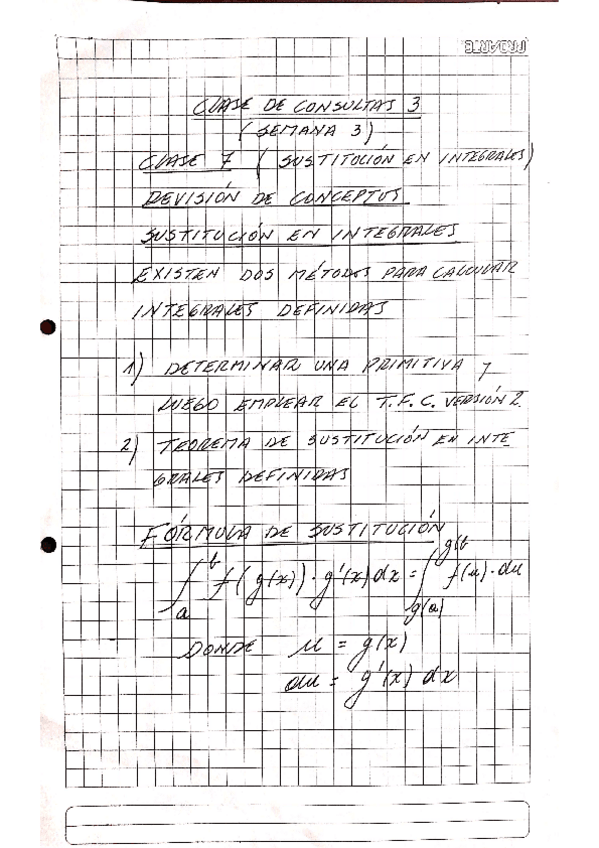 PROARTE
CLASE DE CONSULTAS 3
(SEMANA 3)
CLASE 7 (SUSTITUCIÓN EN INTEGRALES)
REVISIÓN DE CONCEPTOS
SUSTITUCIÓN EN INTEGRALES
EXISTEN DOS MÉTODOS PARA CALCULAR
INTEGRALES DEFINIDAS
1) DETERMINAR UNA PRIMITIVA Y
LUEGO EMPLEAR EL T.F.C. VERSIÓN 2.
2) TEOREMA DE SUSTITUCIÓN EN INTE
GRALES DEFINIDAS
FÓRMULA DE SUSTITUCIÓN
∫_a^b f(g(x))·g'(x) dx = ∫_{g(a)}^{g(b)} f(u)·du
DONDE u = g(x)
du = g'(x) dx